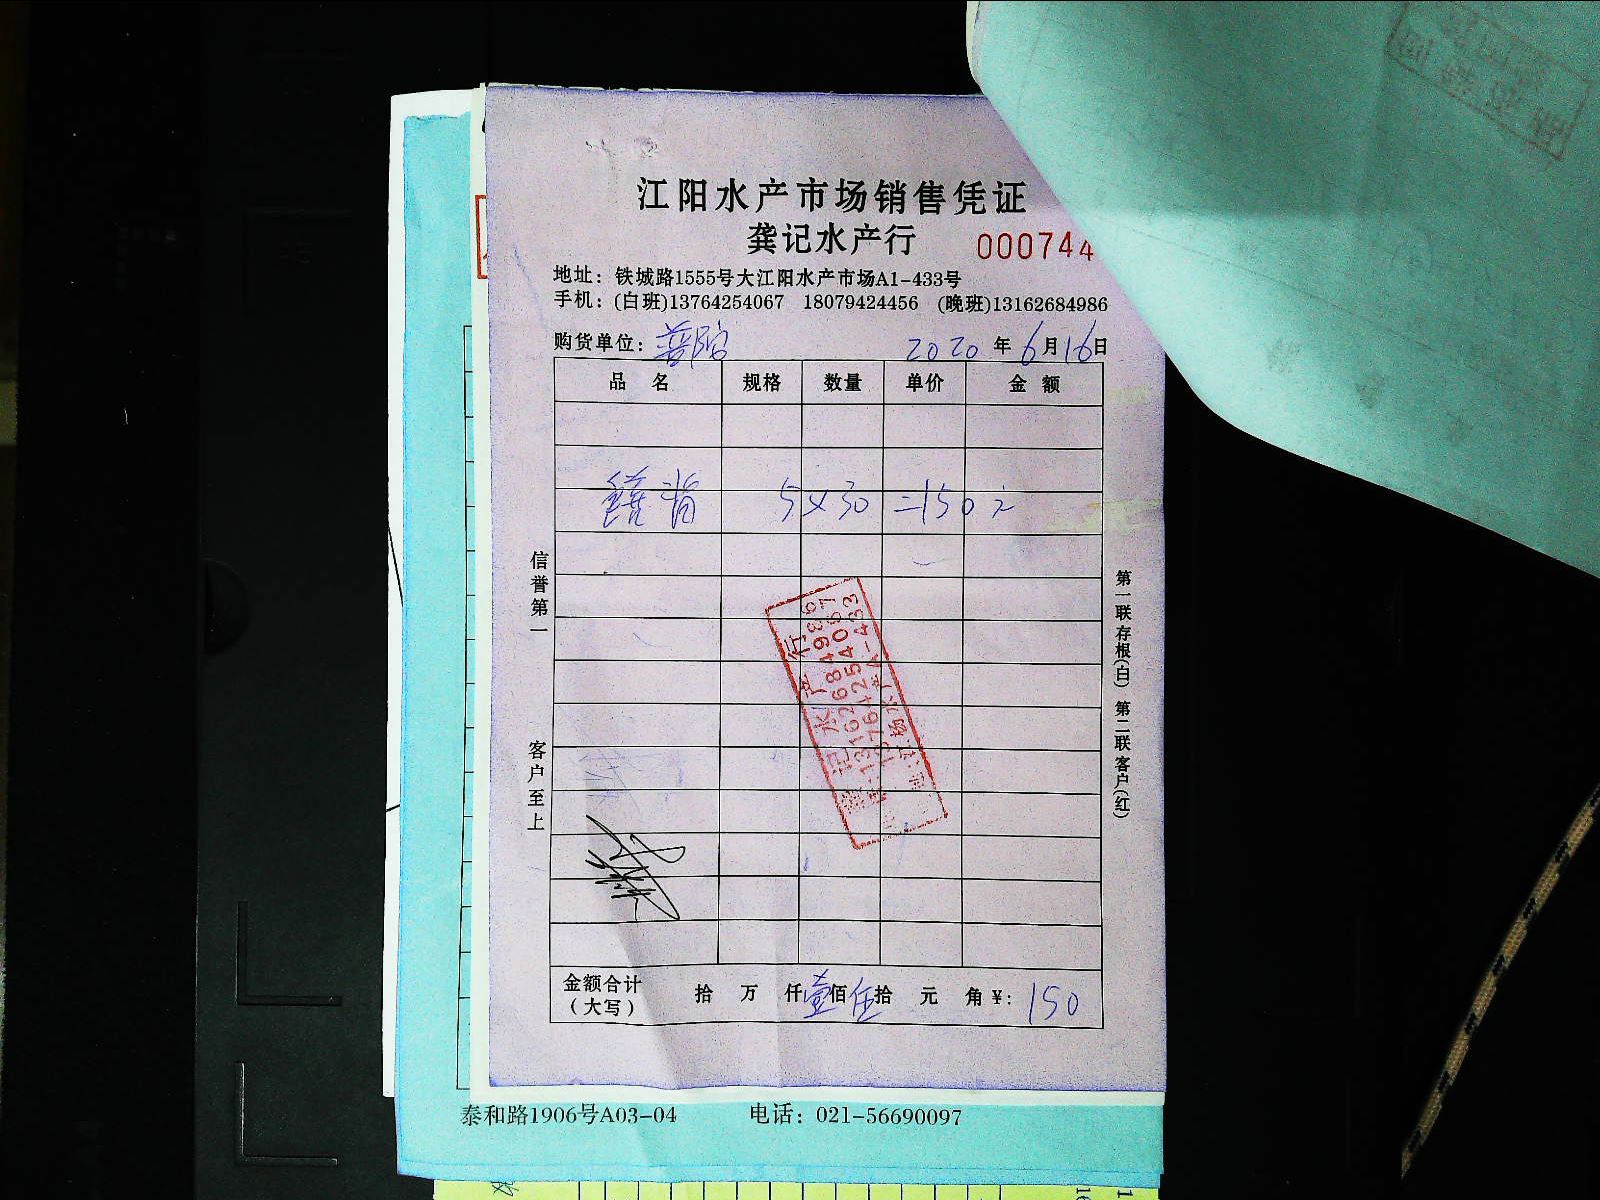 江阳水产市场销售凭证
龚记水产行 000744
地址：铁城路1555号大江阳水产市场A1-433号
手机：(白班)13764254067 18079424456 (晚班)13162684986
购货单位：普陀 2020年6月16日
品名 规格 数量 单价 金额
5×30=150元
信誉第一
客户至上
第一联存根(白) 第二联客户(红)
记水产行
13162684986
13764254067
金额合计(大写) 拾 万 仟壹佰伍拾 元 角 ¥：150
泰和路1906号A03-04 电话：021-56690097